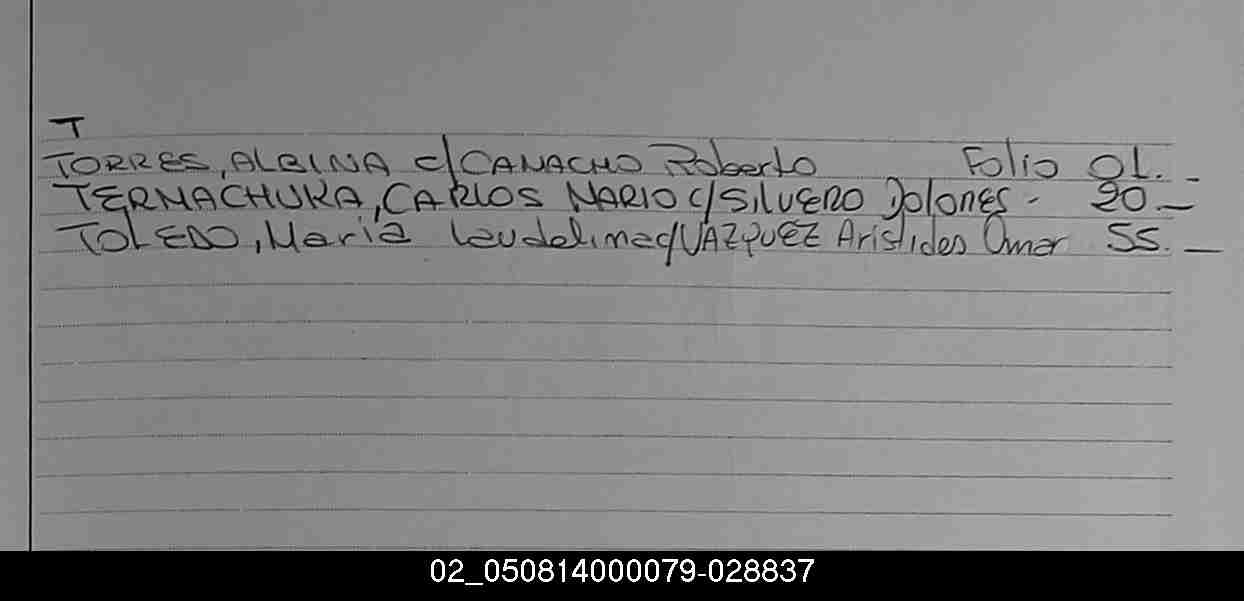 T
TORRES, ALBINA c/CAMACHO Roberto Folio 01. -
TERMACHUKA, CARLOS MARIO c/SILVERO Dolores - 20 -
TOLEDO, Maria Laudelina c/VAZQUEZ Aristides Omar 55. -
02_050814000079-028837